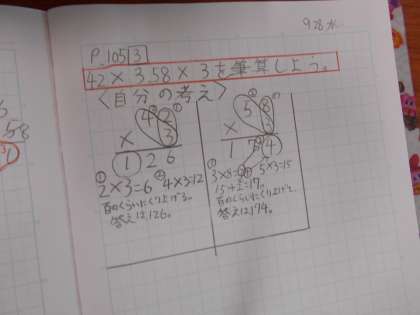 9.28 水
P.105 3
42×3 58×3を筆算しよう。
〈自分の考え〉
① ①
42
×3
126
① 2×3=6 ② 4×3=12
百のくらいにくり上げる。
答えは、126。
58
×3
174
5×3=15
15+2=17。
百のくらいにくり上げる。
答えは、174。
58